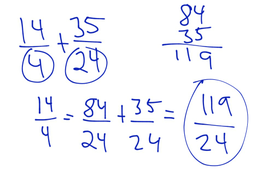 14/4 + 35/24
84
35
119
14/4 = 84/24 + 35/24 = 119/24